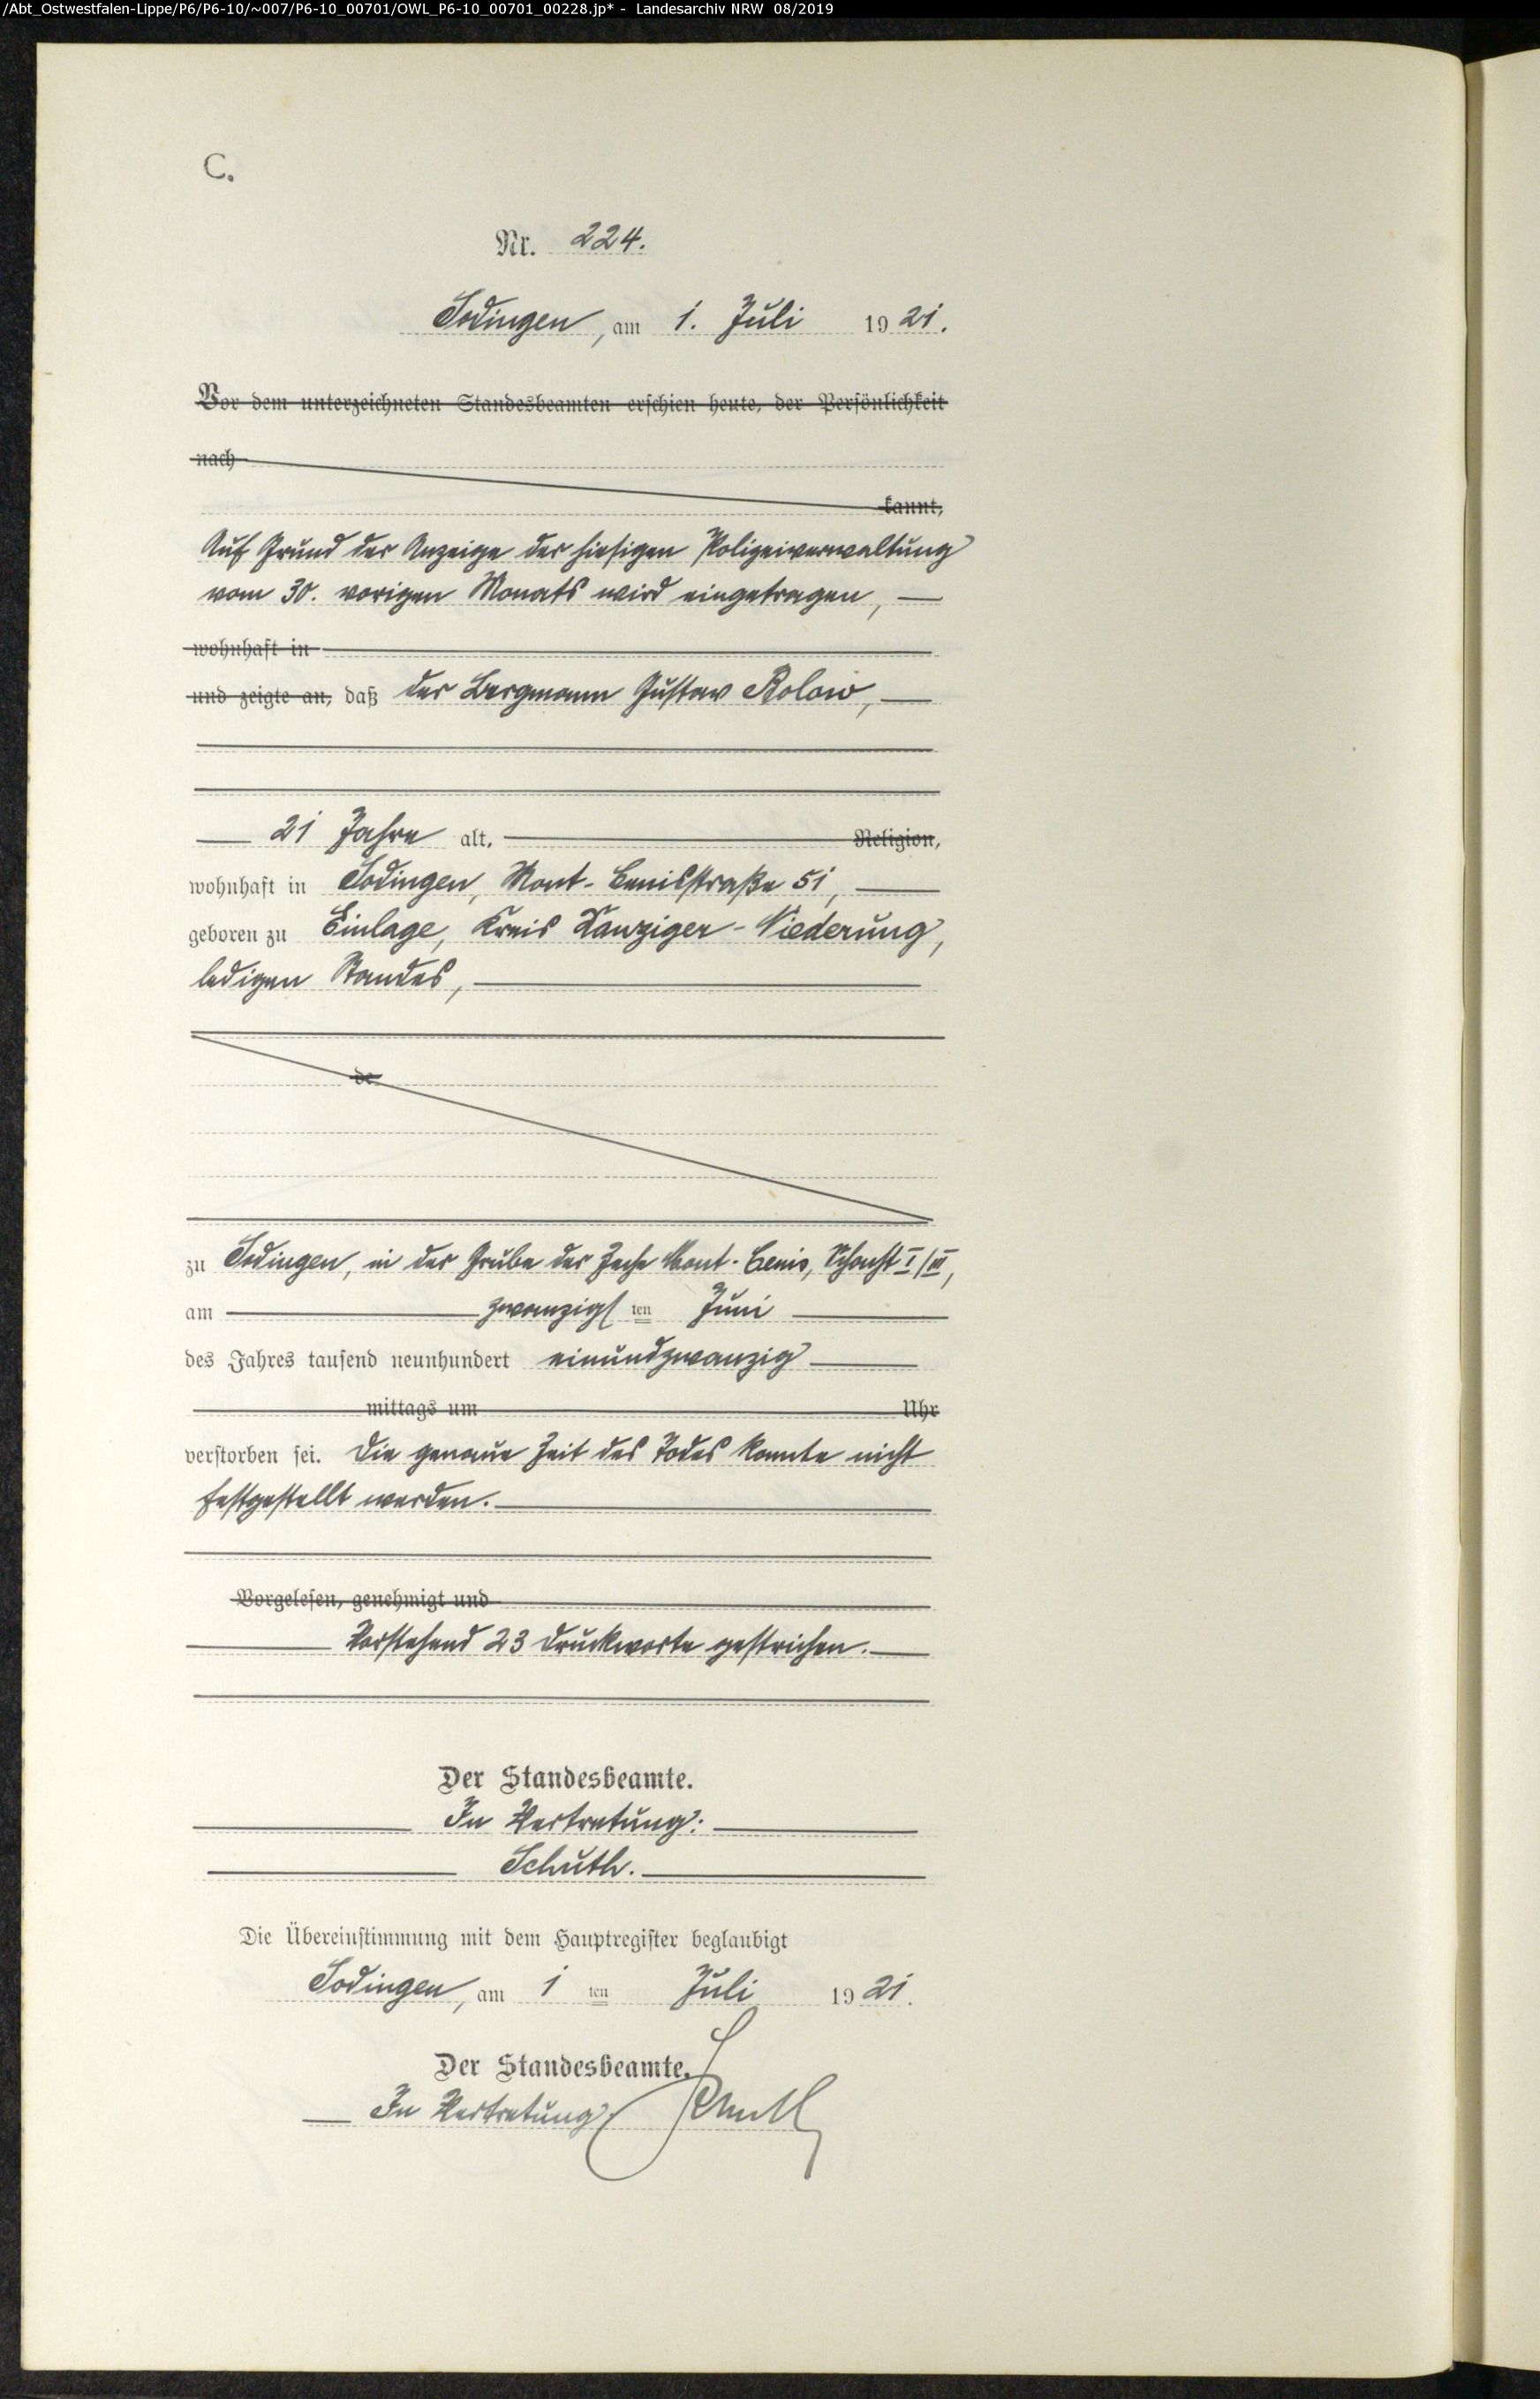 /Abt_Ostwestfalen-Lippe/P6/P6-10/~007/P6-10_00701/OWL_P6-10_00701_00228.jp* - Landesarchiv NRW 08/2019
C.
Nr. 224.
Sodingen, am 1. Juli 1921.
Vor dem unterzeichneten Standesbeamten erschien heute, der Persönlichkeit
nach
kannt,
Auf Grund der Anzeige der hiesigen Polizeiverwaltung
vom 30. vorigen Monats wird eingetragen,
wohnhaft in
und zeigte an, daß der Bergmann Gustav Rolow,
21 Jahre alt, Religion,
wohnhaft in Sodingen, Mont-Cenisstraße 51,
geboren zu Einlage, Kreis Danziger-Niederung,
ledigen Standes,
de
zu Sodingen, in der Grube der Zeche Mont-Cenis, Schacht I/III,
am zwanzigsten Juni
des Jahres tausend neunhundert einundzwanzig
mittags um Uhr
verstorben sei. Die genaue Zeit des Todes konnte nicht
festgestellt werden.
Vorgelesen, genehmigt und
Vorstehend 23 Druckworte gestrichen.
Der Standesbeamte.
In Vertretung:
Schuth.
Die Übereinstimmung mit dem Hauptregister beglaubigt
Sodingen, am 1 ten Juli 1921.
Der Standesbeamte.
In Vertretung: Schuth